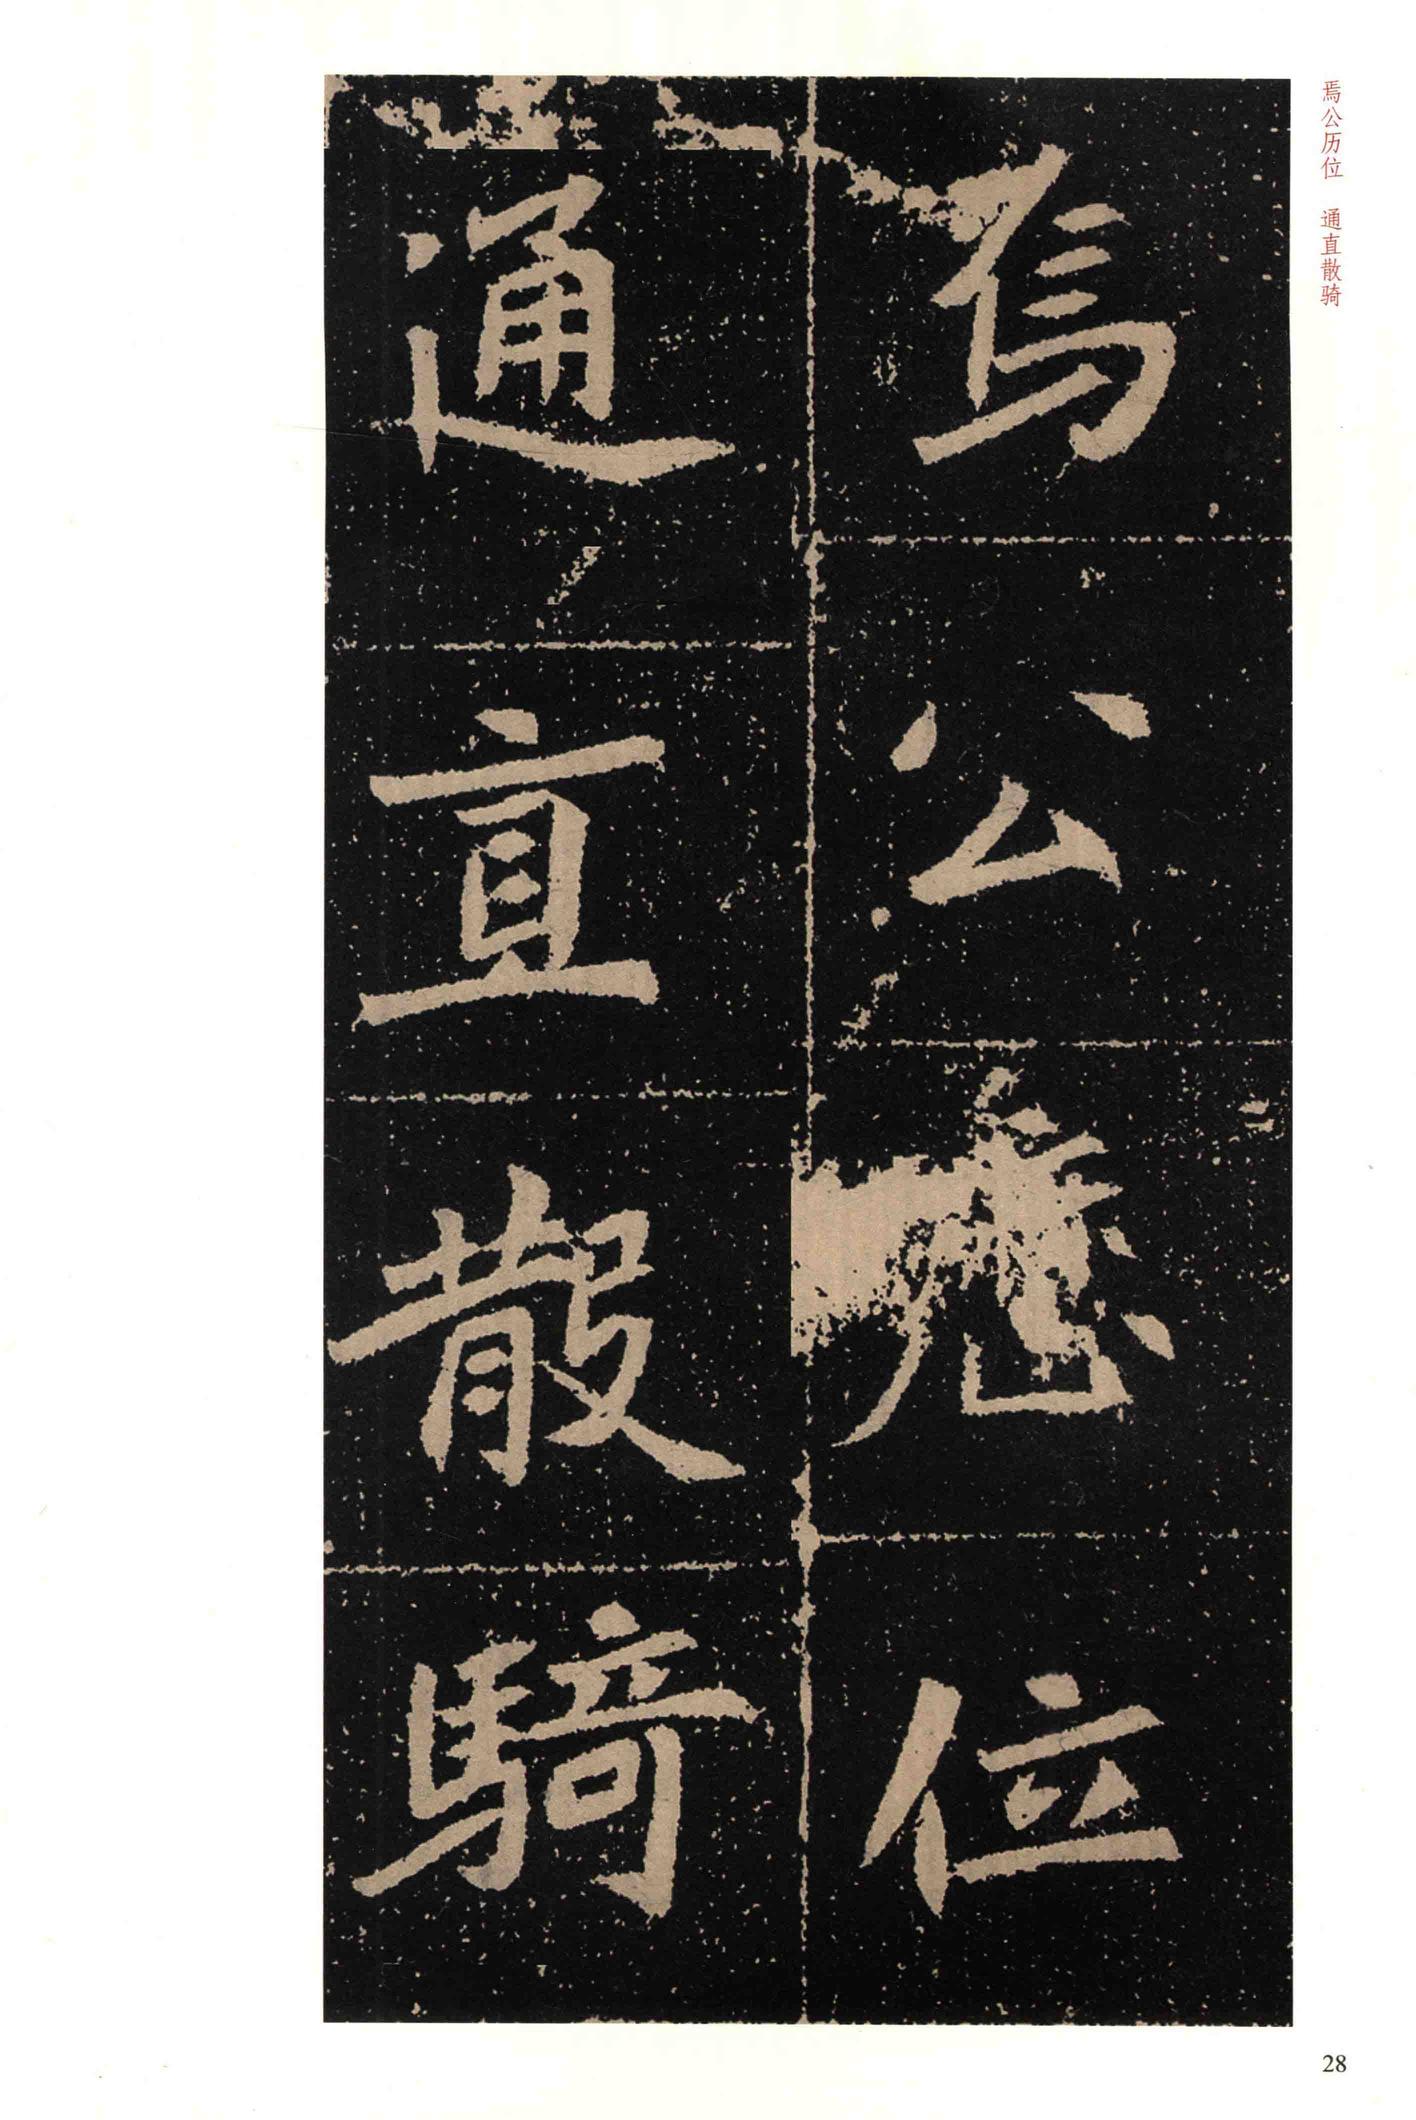 焉公历位　通直散骑
焉公歷位
通直散騎
28